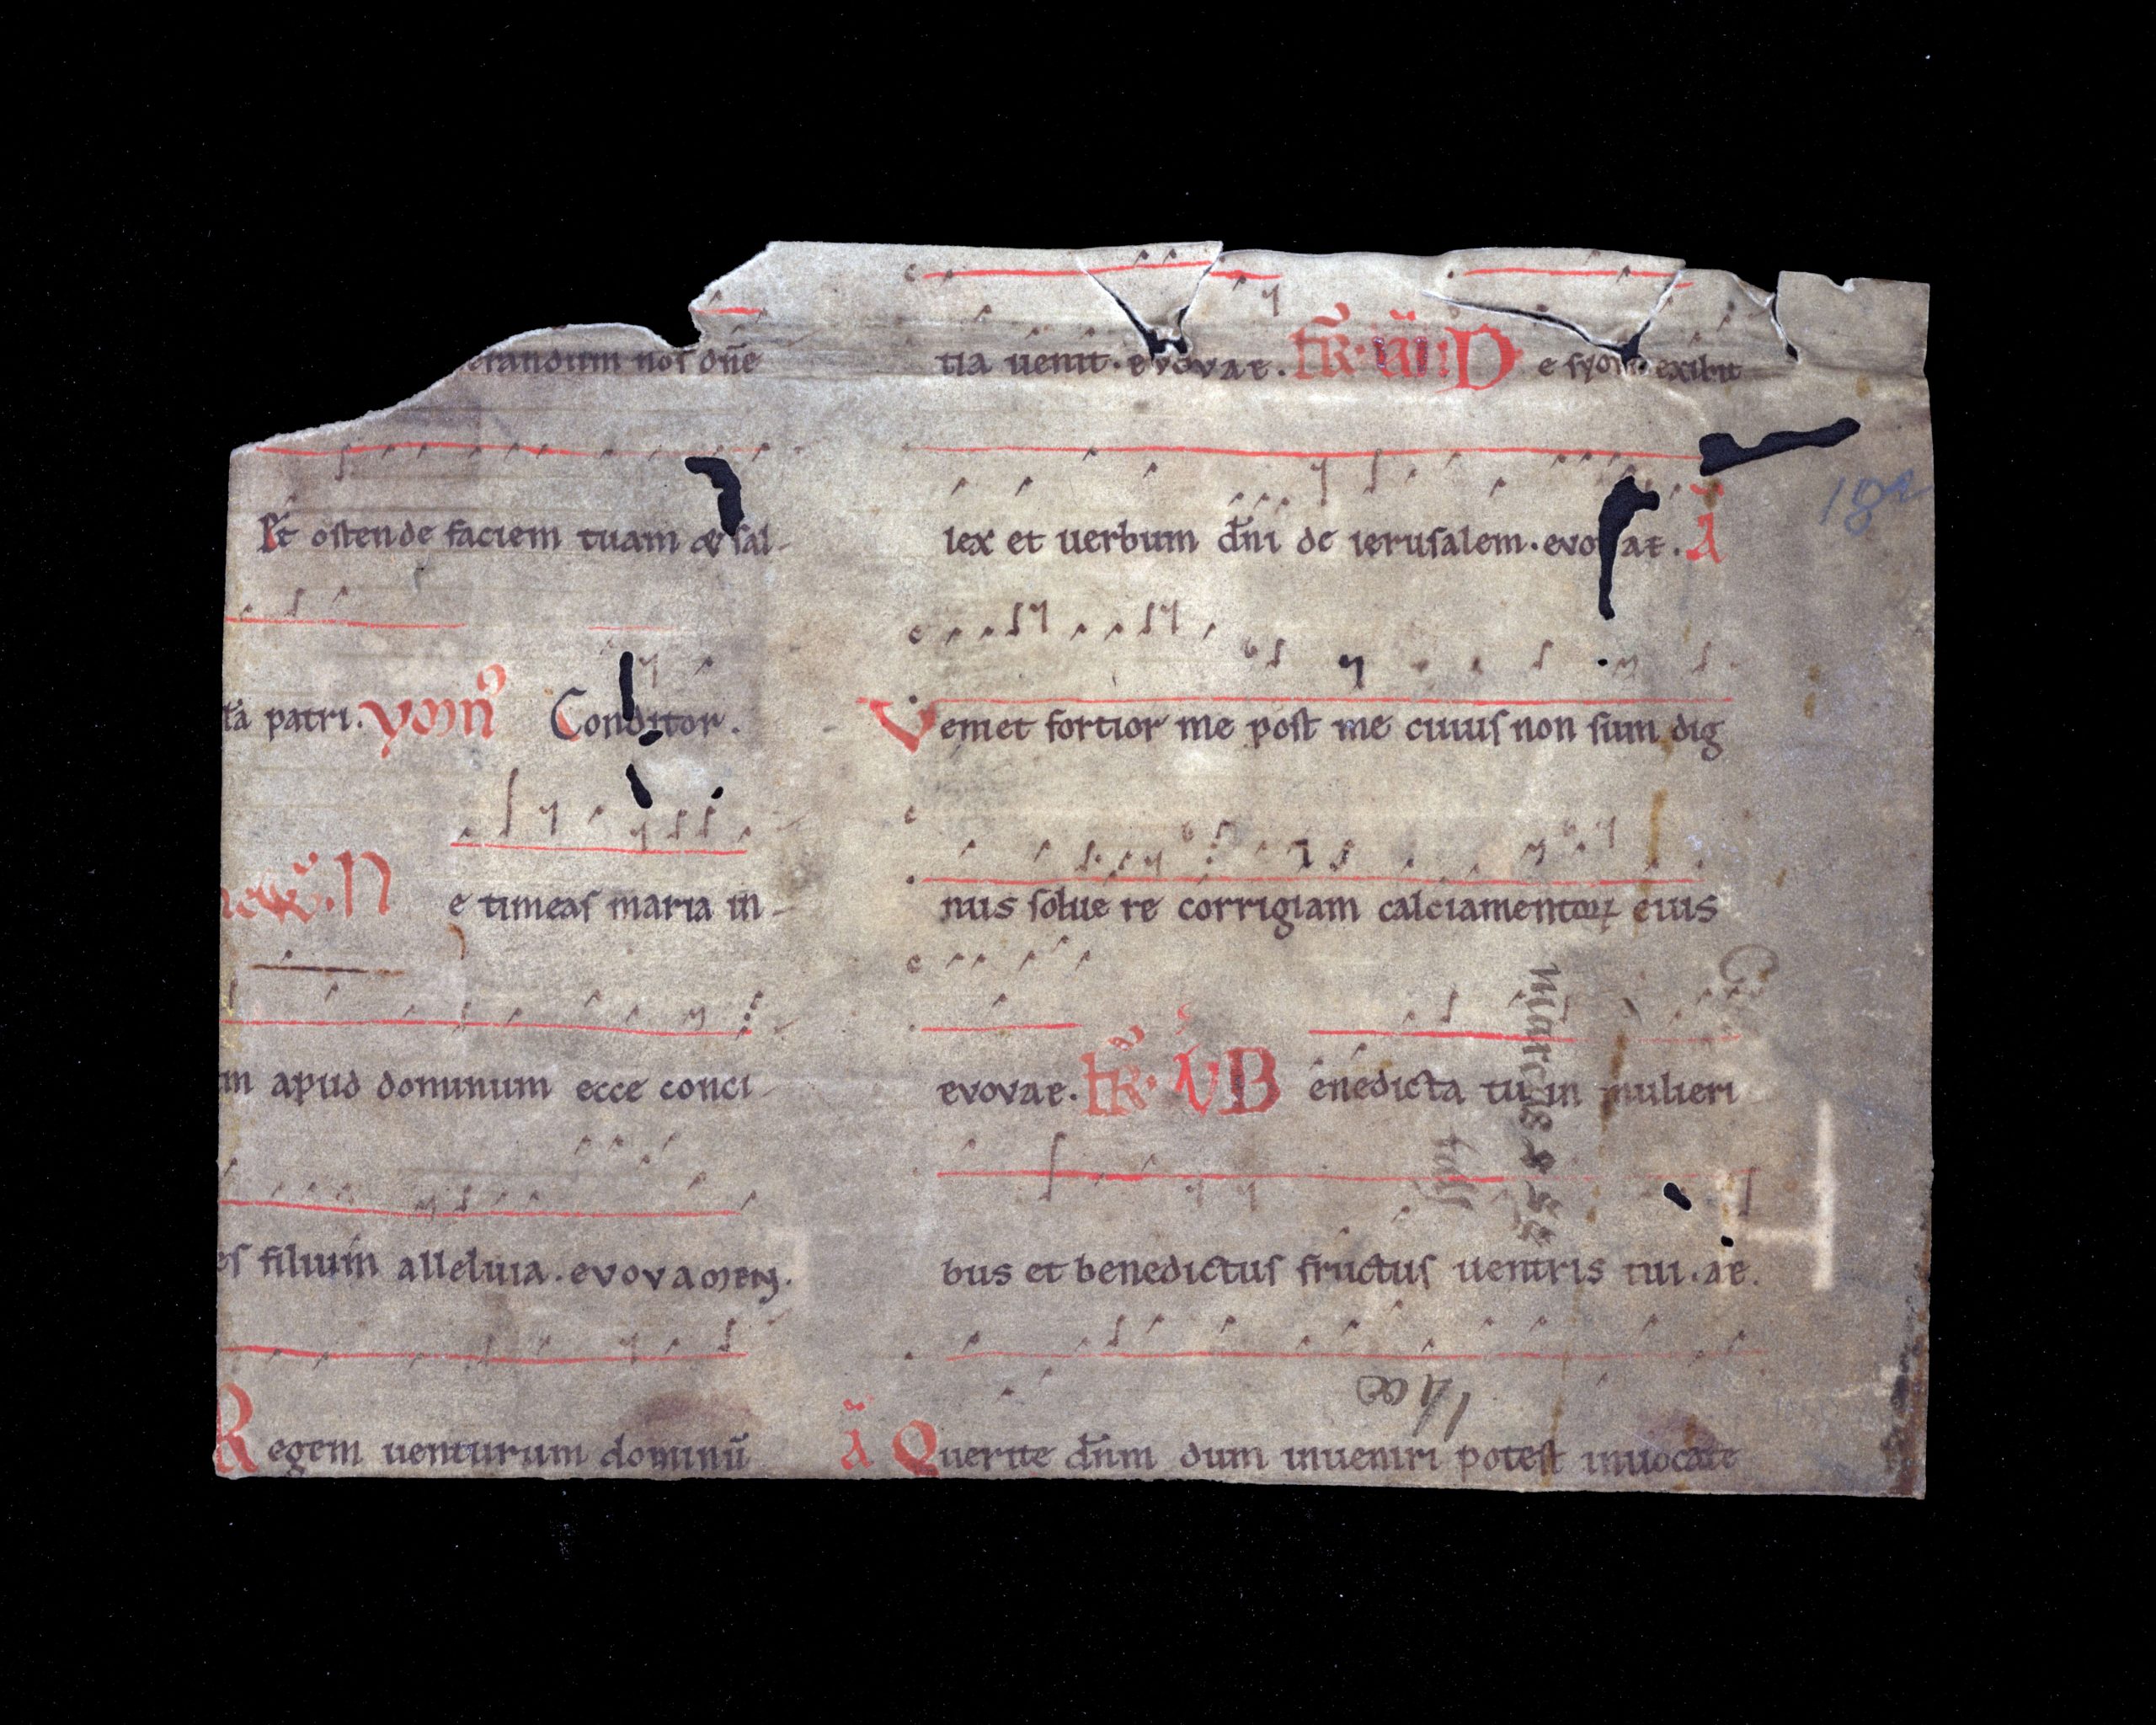 erandum nos dn̄e
Et ostende faciem tuam & sal-
patri. ymn⁹ Conditor.
N e timeas maria in-
apud dominum ecce conci-
es filium alleluia. evovamen.
Regem uenturum dominū
tia uenit. evovae. D e syon exibit
lex et uerbum dn̄i de ierusalem. evo ae. A
Veniet fortior me post me cuius non sum dig
nus soluere corrigiam calciamentoꝝ eius
evovae. B enedicta tu in mulieri
bus et benedictus fructus uentris tui. ae.
A Querite dn̄m dum inueniri potest inuocate
Marcus